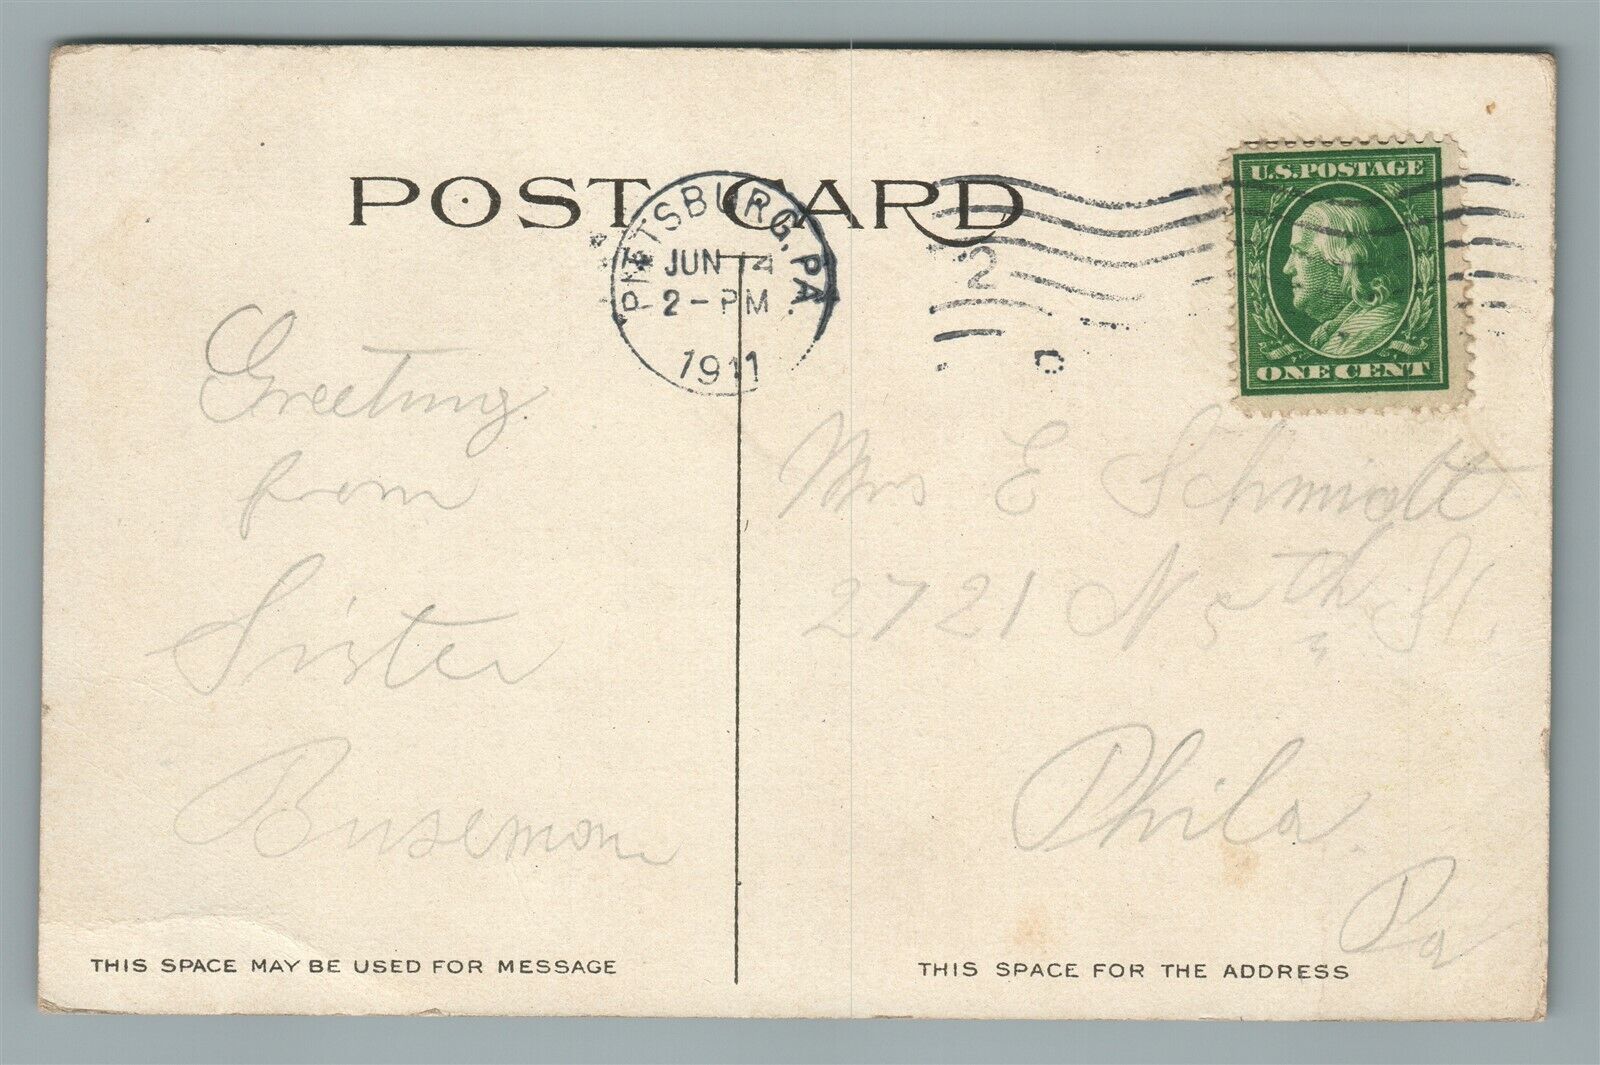 POST CARD
PITTSBURG, PA.
JUN 14
2-PM
1911
2
U.S. POSTAGE
ONE CENT
Greeting
from
Sister
Buseman
Mrs E Schmidt
2721 N 5th St.
Phila.
Pa
THIS SPACE MAY BE USED FOR MESSAGE
THIS SPACE FOR THE ADDRESS